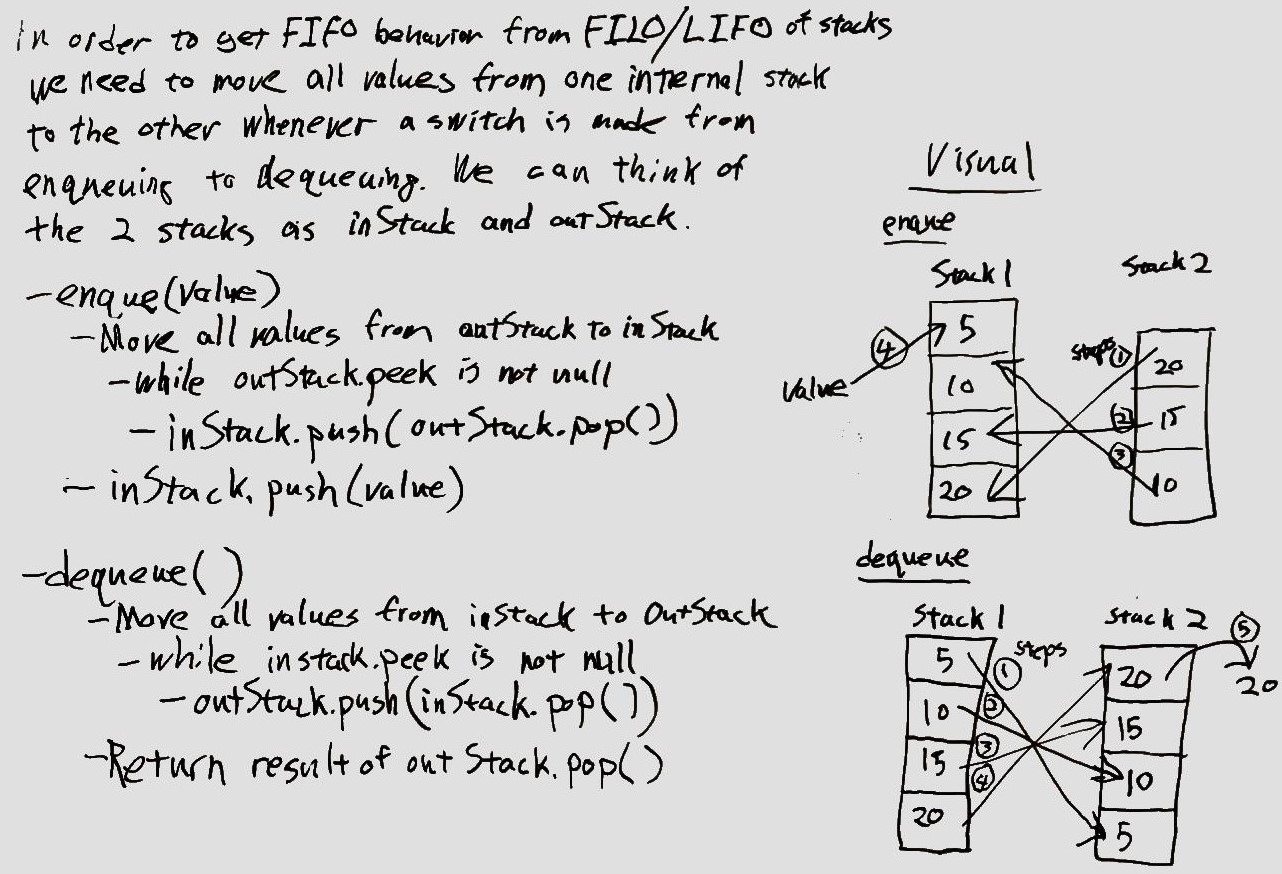 in order to get FIFO behavior from FILO/LIFO of stacks
we need to move all values from one internal stack
to the other whenever a switch is made from
enqueuing to dequeuing. We can think of
the 2 stacks as inStack and outStack.
-enque(value)
-Move all values from outStack to inStack
-while outStack.peek is not null
-inStack.push(outStack.pop())
-inStack.push(value)
-dequeue()
-Move all values from inStack to OutStack
-while instack.peek is not null
-outStack.push(inStack.pop())
-Return result of out Stack.pop()
Visual
enque
Stack 1
Stack 2
value
4
5
10
15
20
steps 1
2
3
20
15
10
dequeue
Stack 1
Stack 2
5
10
15
20
1 steps
2
3
4
20
15
10
5
5
20